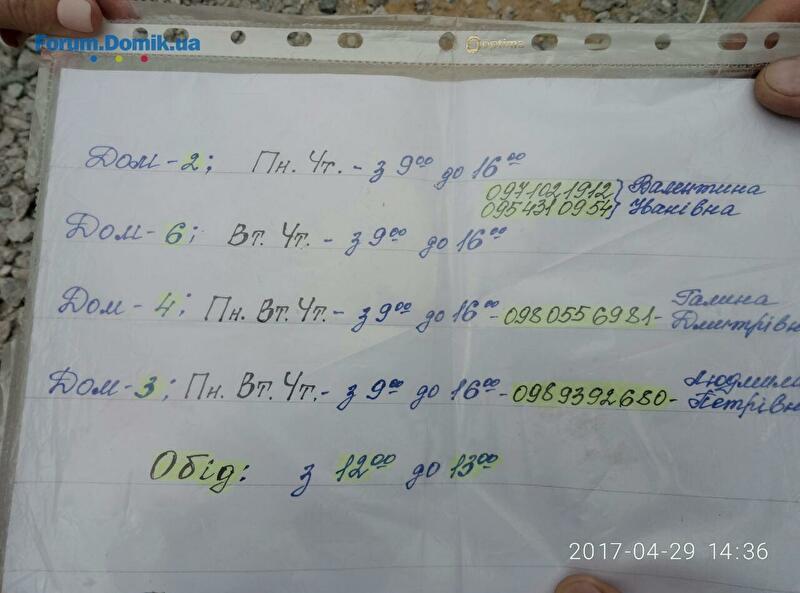 Forum.Domik.ua
Optima
Дом-2; Пн. Чт. - з 9⁰⁰ до 16⁰⁰
0971021912 } Валентина
0954310954 } Іванівна
Дом-6; Вт. Чт. - з 9⁰⁰ до 16⁰⁰
Дом-4; Пн. Вт. Чт. - з 9⁰⁰ до 16⁰⁰ - 0980556981 - Галина
Дмитрівн
Дом-3; Пн. Вт. Чт. - з 9⁰⁰ до 16⁰⁰ - 0989392680 - Людмила
Петрівн
Обід: з 12⁰⁰ до 13⁰⁰
2017-04-29 14:36